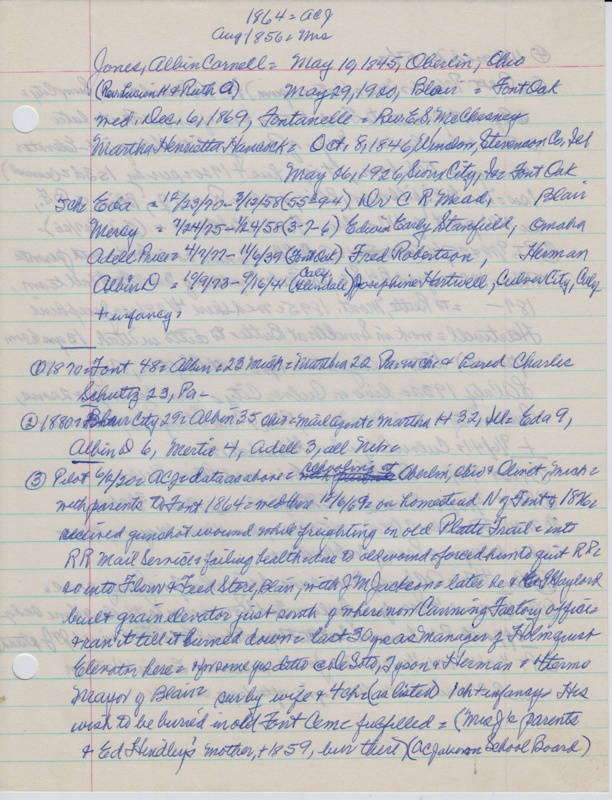 1864 = ACJ
Aug 1856 = Mrs
Jones, Albin Cornell = May 10, 1845, Oberlin, Ohio
(Rev. Lucien H & Ruth A) May 29, 1920, Blair = Font Oak
med. Dec, 6, 1869, Fontanelle = Rev. E.S. McChesney
Martha Henrietta Hancock = Oct. 8, 1846, Stevenson Co, Ill
May 26, 1926 Sioux City, Ia = Font Oak
5ch Eda = 12/23/70 - 3/12/58 Dr C R Mead, Blair
Mercy = 7/24/75 - 1/24/58 (3-7-6) Edwin Early Stanfield, Omaha
Adell Price = 4/7/77 - 11/6/39 (Font Oak) Fred Robertson, Herman
Albin D = 10/9/73 - 9/16/41 (Glendale Caly) Josephine Hartwell, Culver City, Caly
+ infancy =
① 1870 = Font 48 = Albin = 23 Mich = Martha 22 Pa = & Pared Charles
Schultz 23, Pa =
② 1880 = Blair City 29 = Albin 35 Ohio = Mail Agent = Martha H 32, Ill = Eda 9,
Albin D 6, Mertie 4, Adell 3, all Nebr
③ Pilot 6/6/20 = ACJ = data as above = schooling at Oberlin, Ohio & Olivet, Mich =
with parents to Font 1864 = med here 12/6/69 = on homestead N of Font & 1876 =
received gunshot wound while freighting on old Platte Trail = into
RR Mail Service = failing health due to old wound forced him to quit RR =
so into Flour & Feed Store, Blair, with J M Jackson = later he & Gaylord
built grain elevator just south of where now Canning Factory office =
& ran it till it burned down = last 30 yrs as manager of Holmquist
Elevator here = & for some yrs ditto @ De Soto, Tyson & Herman = 4 terms
Mayor of Blair = sur by wife & 4 ch (as listed) 1 ch + infancy = His
wish to be buried in old Font Ceme fulfilled = (Mrs J's parents
& Ed Hindley's mother, + 1859, bur there) (ACJ also on School Board)